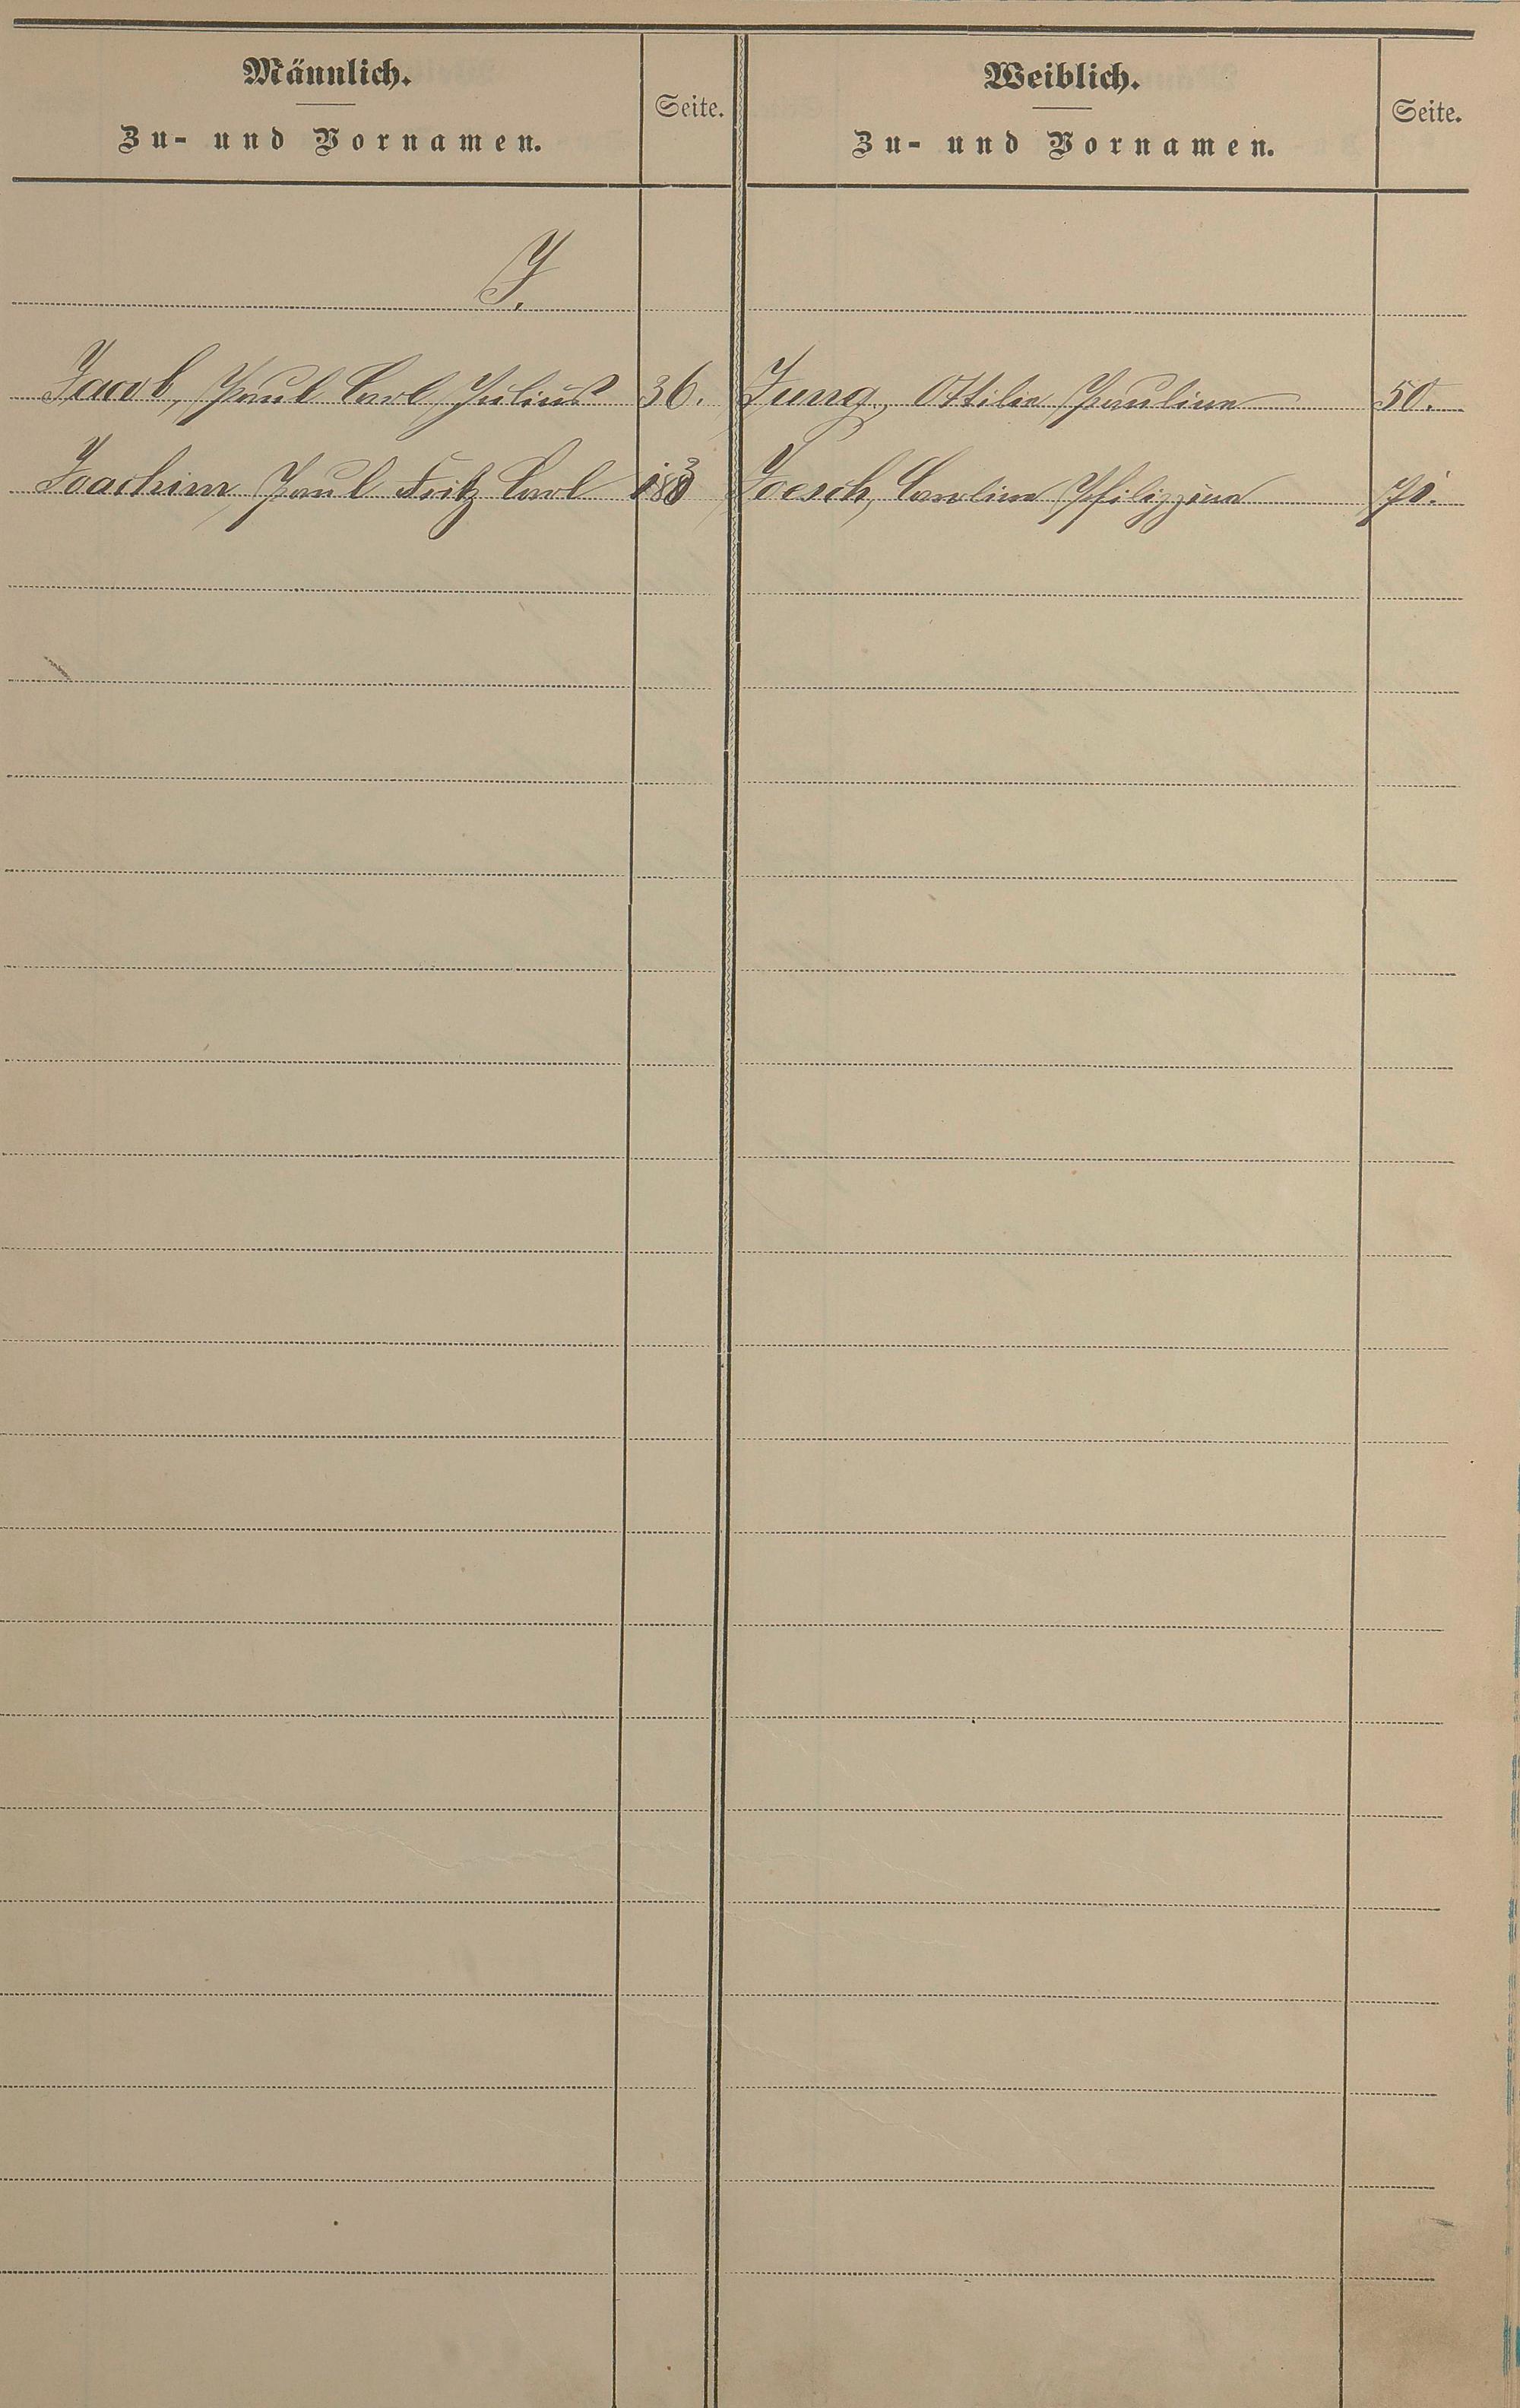 Männlich.
Zu- und Vornamen.
Seite.
Weiblich.
Zu- und Vornamen.
Seite.
J.
Jacob, Paul Carl Julius 36. Jung, Ottilie Pauline 50.
Joachim Paul Fritz Carl Joesch, Caroline Philippine 71.